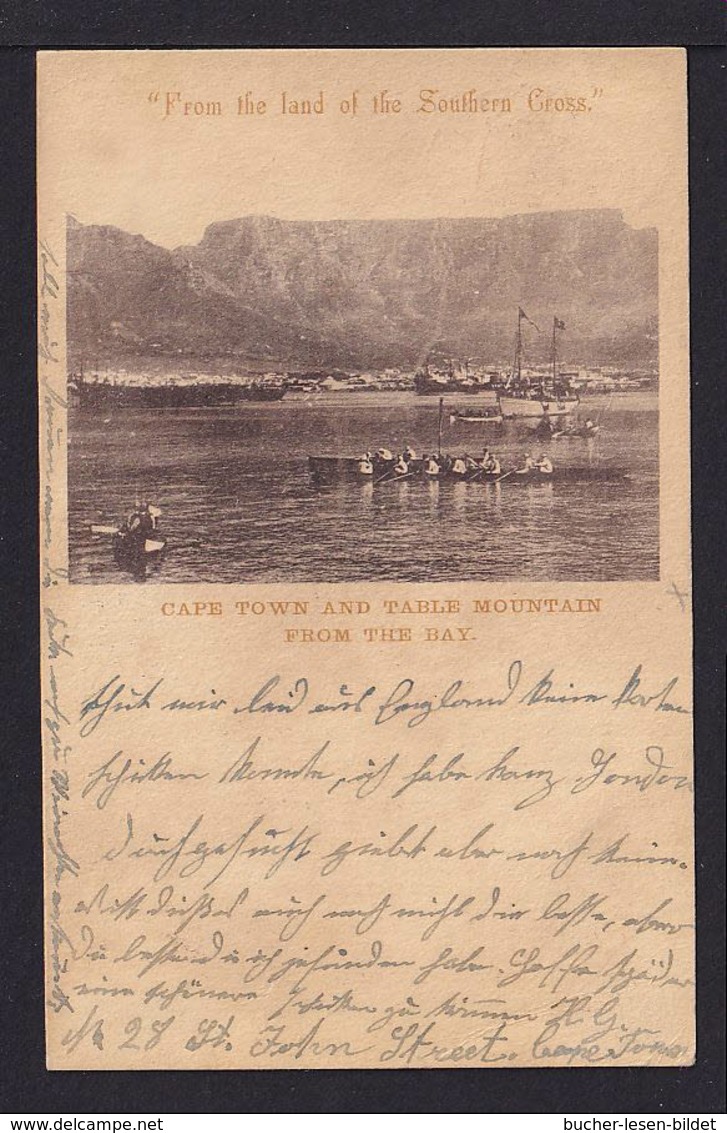 "From the land of the Southern Cross."
CAPE TOWN AND TABLE MOUNTAIN
FROM THE BAY.
thut mir leid aus England keine Karten
schikken konnte, ich habe ganz London
durchgesucht giebt aber noch keine.
ist dießes auch noch nicht die beste, aber
die besten die ich gefunden habe. Hoffe später
eine schönere schikken zu können H. G.
No 28 St. John Street. Cape Town
bucher-lesen-bildet